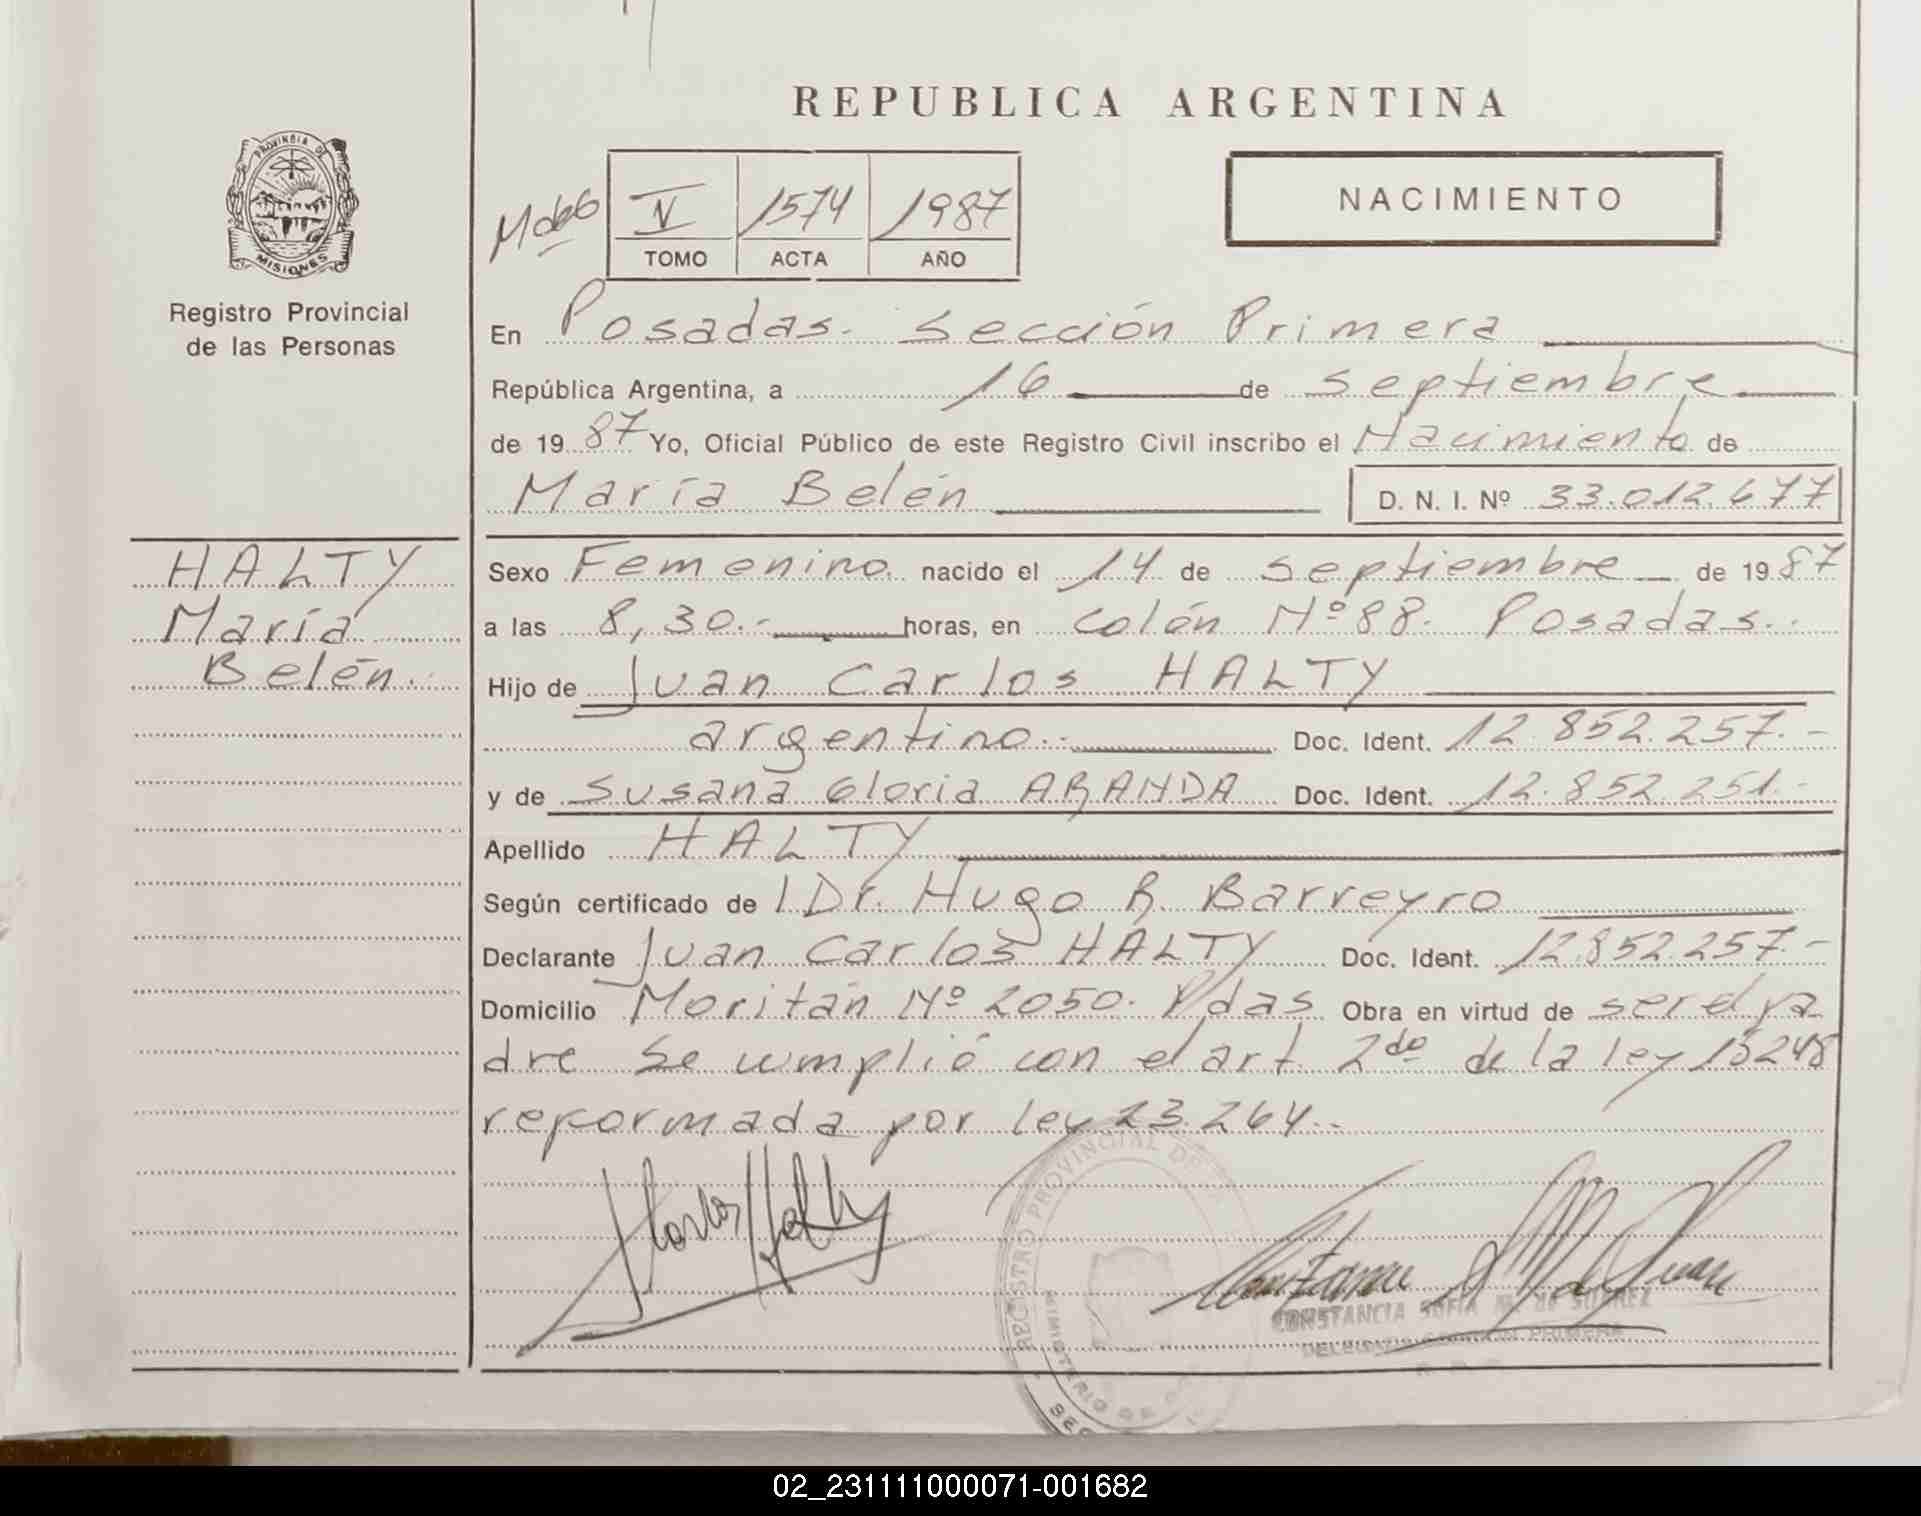 REPUBLICA ARGENTINA
PROVINCIA DE
MISIONES
Registro Provincial
de las Personas
IV 1574 1987
TOMO ACTA AÑO
NACIMIENTO
En Posadas. Sección Primera
República Argentina, a 16 de septiembre
de 1987 Yo, Oficial Público de este Registro Civil inscribo el Nacimiento de
María Belén D. N. I. Nº 33.012.677
HALTY
María
Belén.
Sexo Femenino nacido el 14 de septiembre de 1987
a las 8,30.- horas, en Colón Nº 88. Posadas.
Hijo de Juan Carlos HALTY
argentino.- Doc. Ident. 12.852.257.-
y de Susana Gloria ARANDA Doc. Ident. 12.852.251.-
Apellido HALTY
Según certificado de Dr. Hugo R. Barreyro
Declarante Juan Carlos HALTY Doc. Ident. 12.852.257.-
Domicilio Moritán Nº 2050. Pdas Obra en virtud de ser el pa
dre Se cumplió con el art. 2do de la ley 18248
reformada por ley 23.264.-
REGISTRO PROVINCIAL DE
MINISTERIO DE
CONSTANCIA SOFIA M. de SUAREZ
02_231111000071-001682